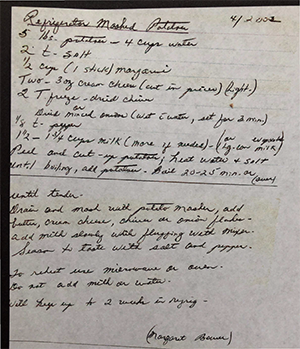 Refrigerator Mashed Potatoes
5 lbs. potatoes - 4 cups water
2 t - salt
1/2 cup (1 stick) margarine
Two - 3 oz cream cheese (cut in pieces) (light)
2 T freeze-dried chives
or
Dried minced onion (wet water, set for 2 min)
pepper
1 1/2 - 1 3/4 cups milk (more if needed) - (or
Peel and cut-up potatoes; heat water & salt
until boiling, add potatoes. Boil 20-25 min. or
until tender.
Drain and mash with potato masher, add
butter, cream cheese, chives or onion flakes -
add milk slowly while fluffing with mixer.
Season to taste with salt and pepper.
To reheat use microwave or oven.
Do not add milk or water.
Will keep up to 2 weeks in refrig -
(Margaret Bauer)